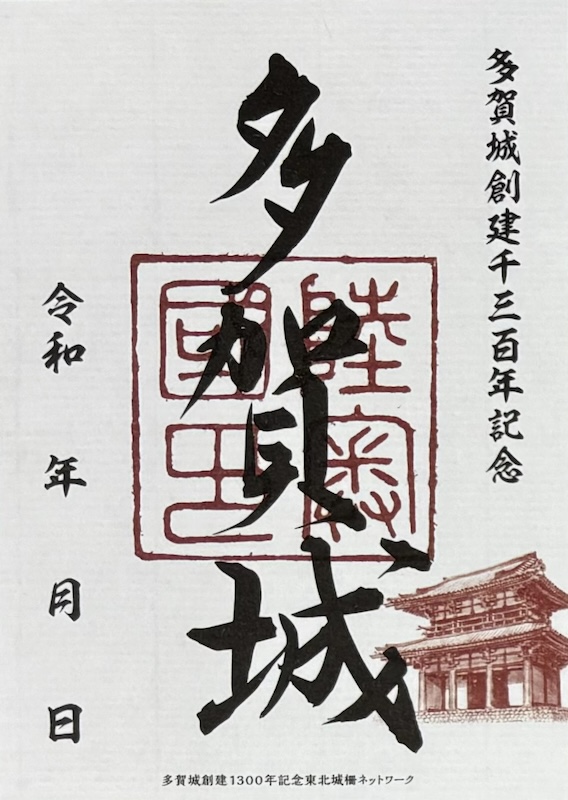 多賀城創建千三百年記念
多賀城
陸奥
國印
令和 年 月 日
多賀城創建1300年記念東北城柵ネットワーク